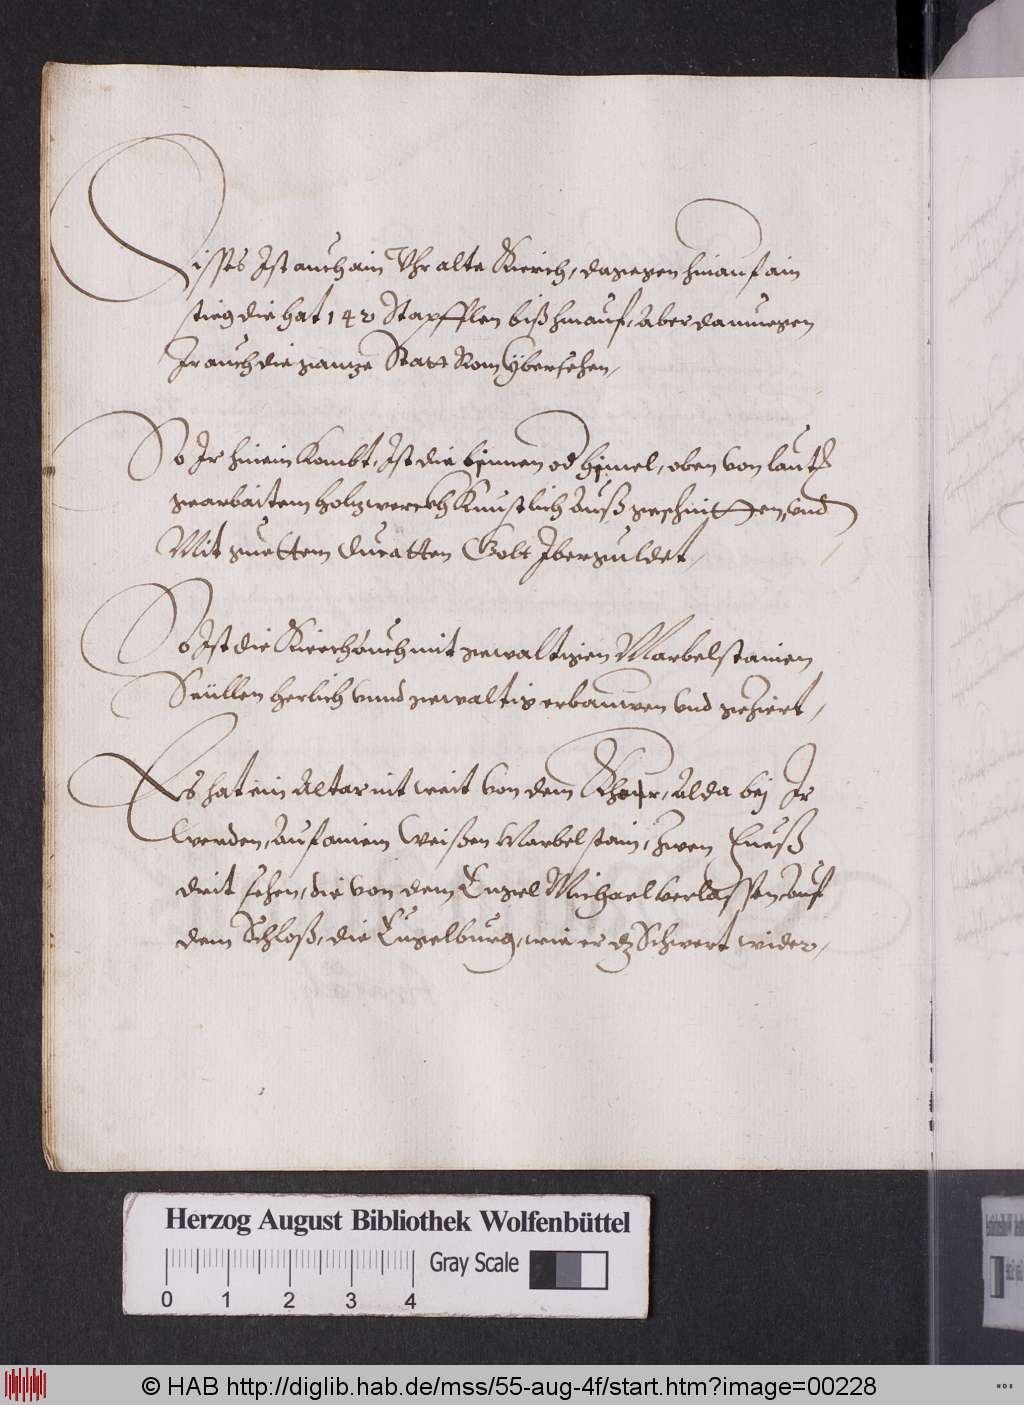 Disses Ist auch ain Vhr alte Kierch, dagegen hinauf ain
stieg die hat 142 Stapfflen biß hinauf, Aber da muegen
Ir auch die gantze Statt Rom Ybersehen,
So Ir hinein Kombt, Ist die binnen od himel, oben von lautter
gearbaitem holtzwerckh Kunstlich Auß geschnitten, und
Mit guettem Ducatten Golt Iberguldet,
So Ist die Kierch Auch mit gewaltigen Marbelstainen
Seüllen herlich vnnd gewaltig erbauwen vnd geziert,
Es hat ein Altar nit weit von dem Khor, Alda bej Ir
werden, Auf ainem weißen Marbelstain, Zwen Fueß
drit sehen, die von dem Engel Michael verlassen, Auf
dem Schloß, die Engelburg, wie er dz Schwert wider,
Herzog August Bibliothek Wolfenbüttel
Gray Scale
0 1 2 3 4
© HAB http://diglib.hab.de/mss/55-aug-4f/start.htm?image=00228